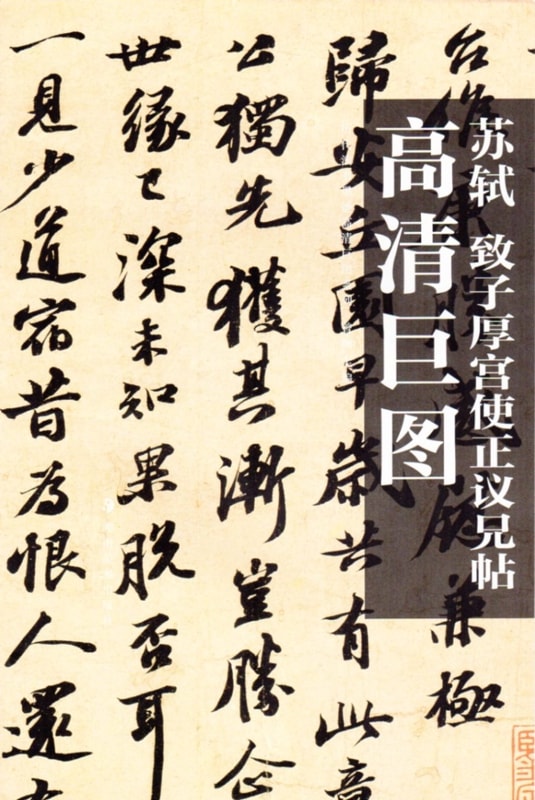 苏轼 致子厚宫使正议兄帖
高清巨图
兼極
歸安丘園早歲共有此意
公獨先獲其漸豈勝企
世緣已深未知果脫否耳
一見少道宿昔為恨人還